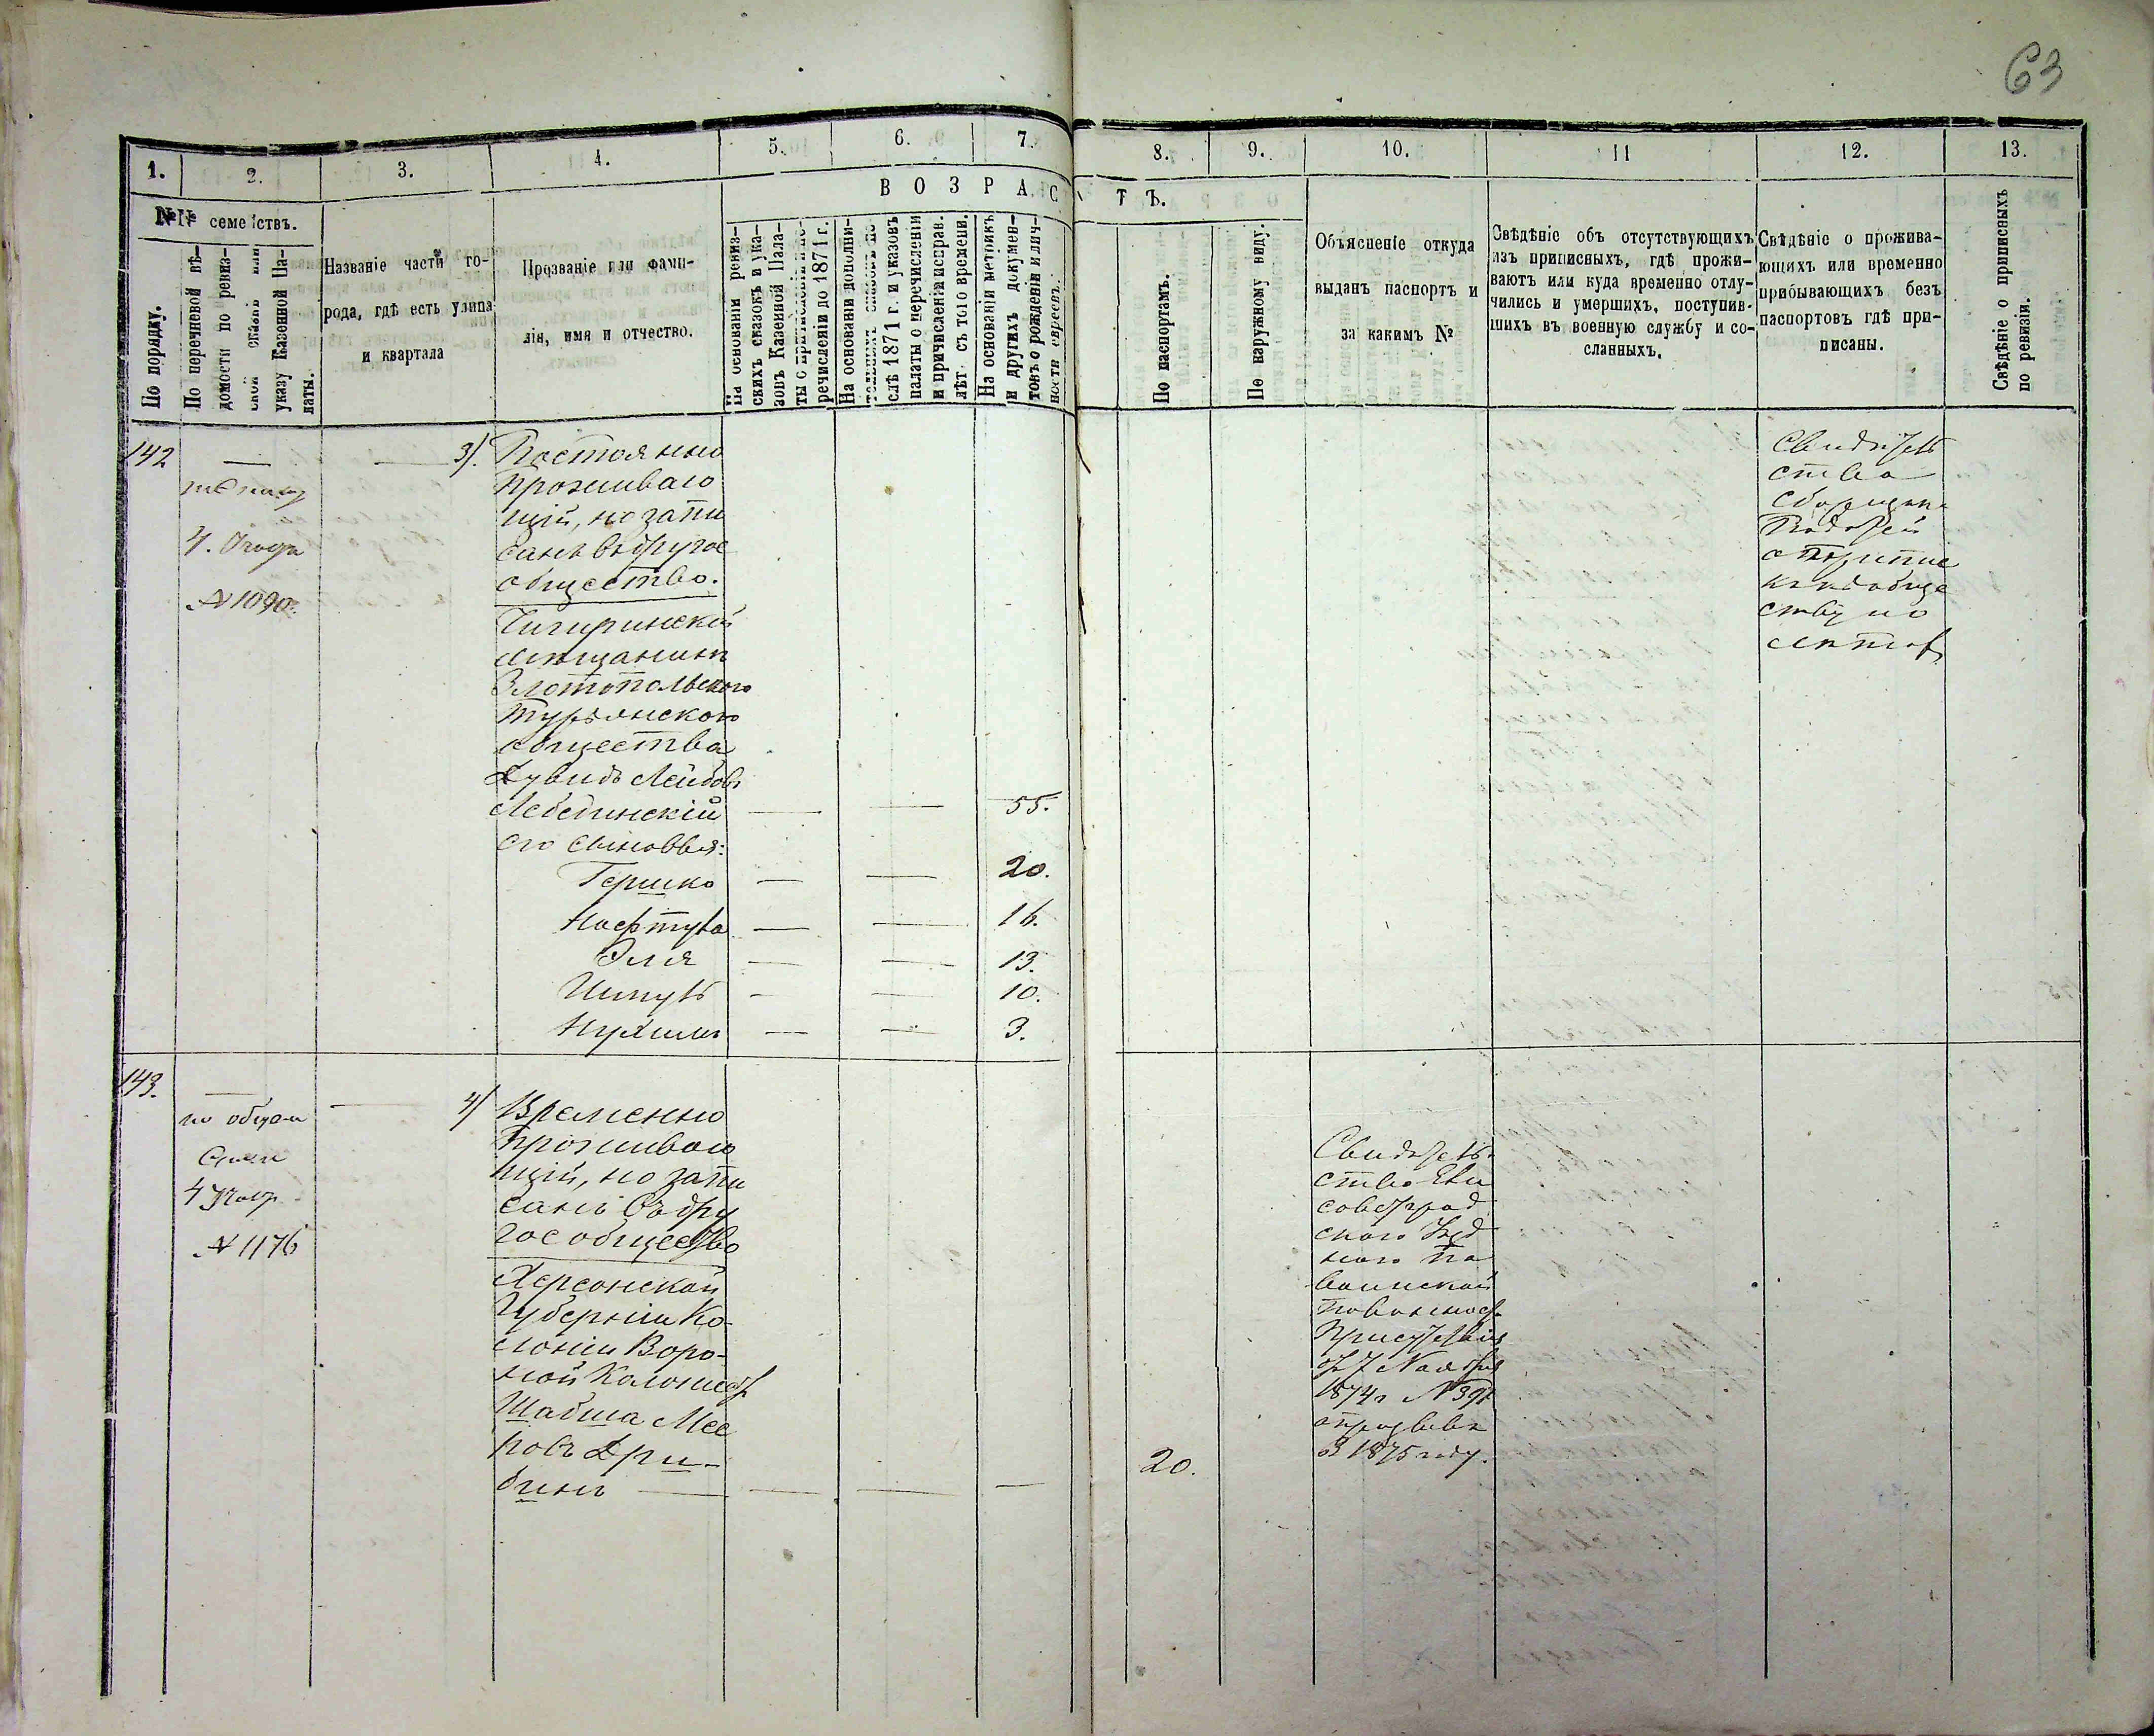 63
1. 2. 3. 4. 5. 6. 7. 8. 9. 10. 11 12. 13.
№№ семействъ.
По порядку.
По перечневой вѣ-
домости по ревиз-
ской сказкѣ или
указу Казенной Па-
латы.
Названіе части го-
рода, гдѣ есть улица
и квартала
Прозваніе или фами-
лія, имя и отчество.
ВОЗРАСТЪ.
На основаніи ревиз-
скихъ сказокъ и ука-
зовъ Казенной Пала-
ты о припискѣ и пе-
речисленіи до 1871 г.
На основаніи дополни-
тельныхъ сказокъ по-
слѣ 1871 г. и указовъ
палаты о перечисленіи
и причисленіи исправ.
лѣт съ того времени.
На основаніи метрикъ
и другихъ докумен-
товъ о рожденіи и лич-
ности евреевъ.
По паспортамъ.
По наружному виду.
Объясненіе откуда
выданъ паспортъ и
за какимъ №
Свѣдѣніе объ отсутствующихъ
изъ приписныхъ, гдѣ прожи-
ваютъ или куда временно отлу-
чились и умершихъ, поступив-
шихъ въ военную службу и со-
сланныхъ.
Свѣдѣніе о прожива-
ющихъ или временно
прибывающихъ безъ
паспортовъ гдѣ при-
писаны.
Свѣдѣніе о приписныхъ
по ревизіи.
142
4.
№ 1090.
3/. Постоянно
проживаю
щій, но запи
санъ въ другое
общество.
Чигиринской
мѣщанинъ
Златопольского
Турьянского
общества
Дувидъ Лейбовъ
Лебединскій — — 55.
его сыновья:
Гершко — — 20.
Нафтула — — 16.
Эля — — 13.
— — 10.
Нухимъ — — 3.
Свидѣтель
ство
сборщика
Податей
о припис
къ обще
ству по
143.
по
4
№ 1176
4/ Временно
Проживаю
щій, но запи
санъ въ дру
гое общество
Херсонской
Губерніи Ко-
лоніи
Колонистъ
Шабша Мее
ровъ Дри-
бинъ — — — —
20.
Свидѣтель
ство Ели
саветград
ского Уѣзд
ного по
воинской
повинност
Присутствія
отъ 7 Ноября
1874 г № 391
въ 1875 году.